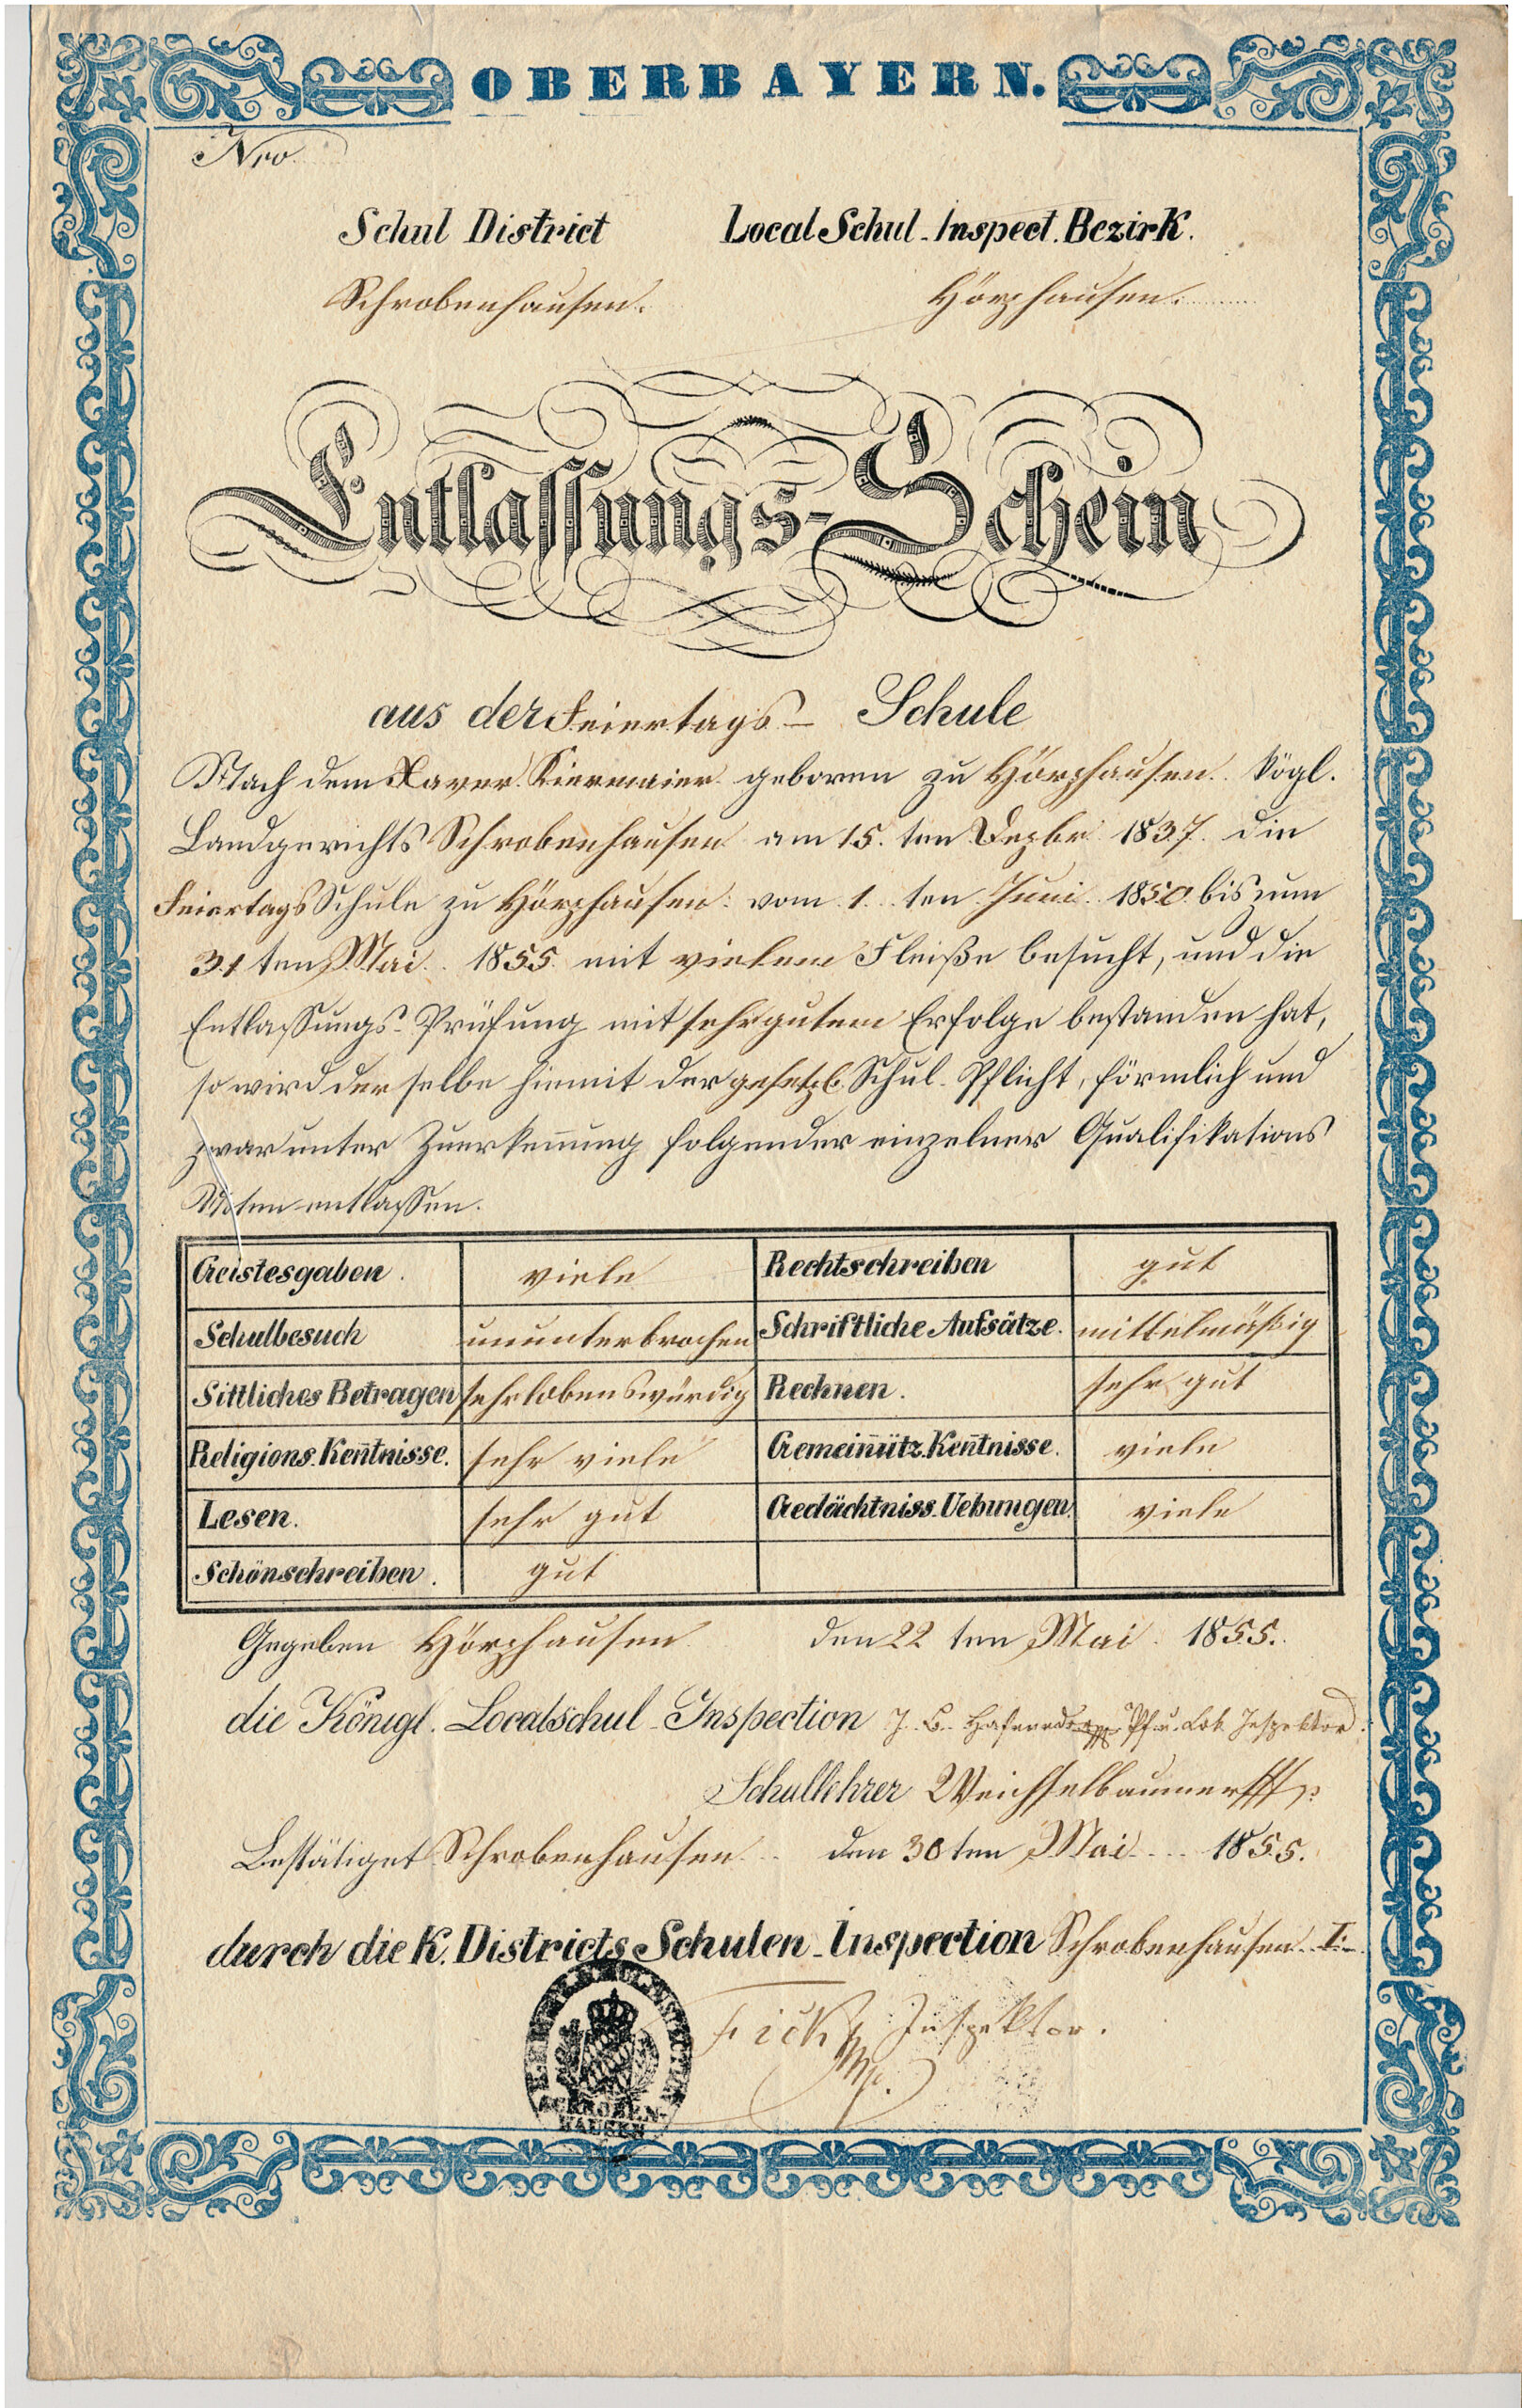 OBERBAYERN.
Nro.
Schul District Local Schul-Inspect. Bezirk.
Schrobenhausen. Hörzhausen.
Entlassungs-Schein
aus der Feiertags- Schule
Nach dem Xaver Kiermaier geboren zu Hörzhausen kögl.
Landgerichts Schrobenhausen am 15. ten Dezbr 1837. die
Feiertags Schule zu Hörzhausen vom 1. ten Juni 1850 bis zum
31 ten Mai 1855 mit vielem Fleiße besucht, und die
Entlassungs-Prüfung mit sehr gutem Erfolge bestanden hat,
so wird derselbe hiemit der gesetzl. Schul-Pflicht, förmlich und
zwar unter Zuerkeñung folgender einzelner Qualifikations
Noten entlassen.
Geistesgaben. viele Rechtschreiben gut
Schulbesuch ununterbrochen Schriftliche Aufsätze. mittelmäßig
Sittliches Betragen sehr lobenswürdig Rechnen. sehr gut
Religions-Keñtnisse. sehr viele Gemeiñütz. Keñtnisse. viele
Lesen. sehr gut Gedächtniss-Uebungen. viele
Schönschreiben. gut
Gegeben Hörzhausen den 22 ten Mai 1855.
die Königl. Localschul-Inspection J. B. Pf. u. Lok. Inspektor.
Schullehrer Weichselbaumer
Bestätiget Schrobenhausen den 30 ten Mai 1855.
durch die K. Districts Schulen-Inspection Schrobenhausen I.
Fick Inspektor.
mp.
SCHROBEN-
HAUSEN